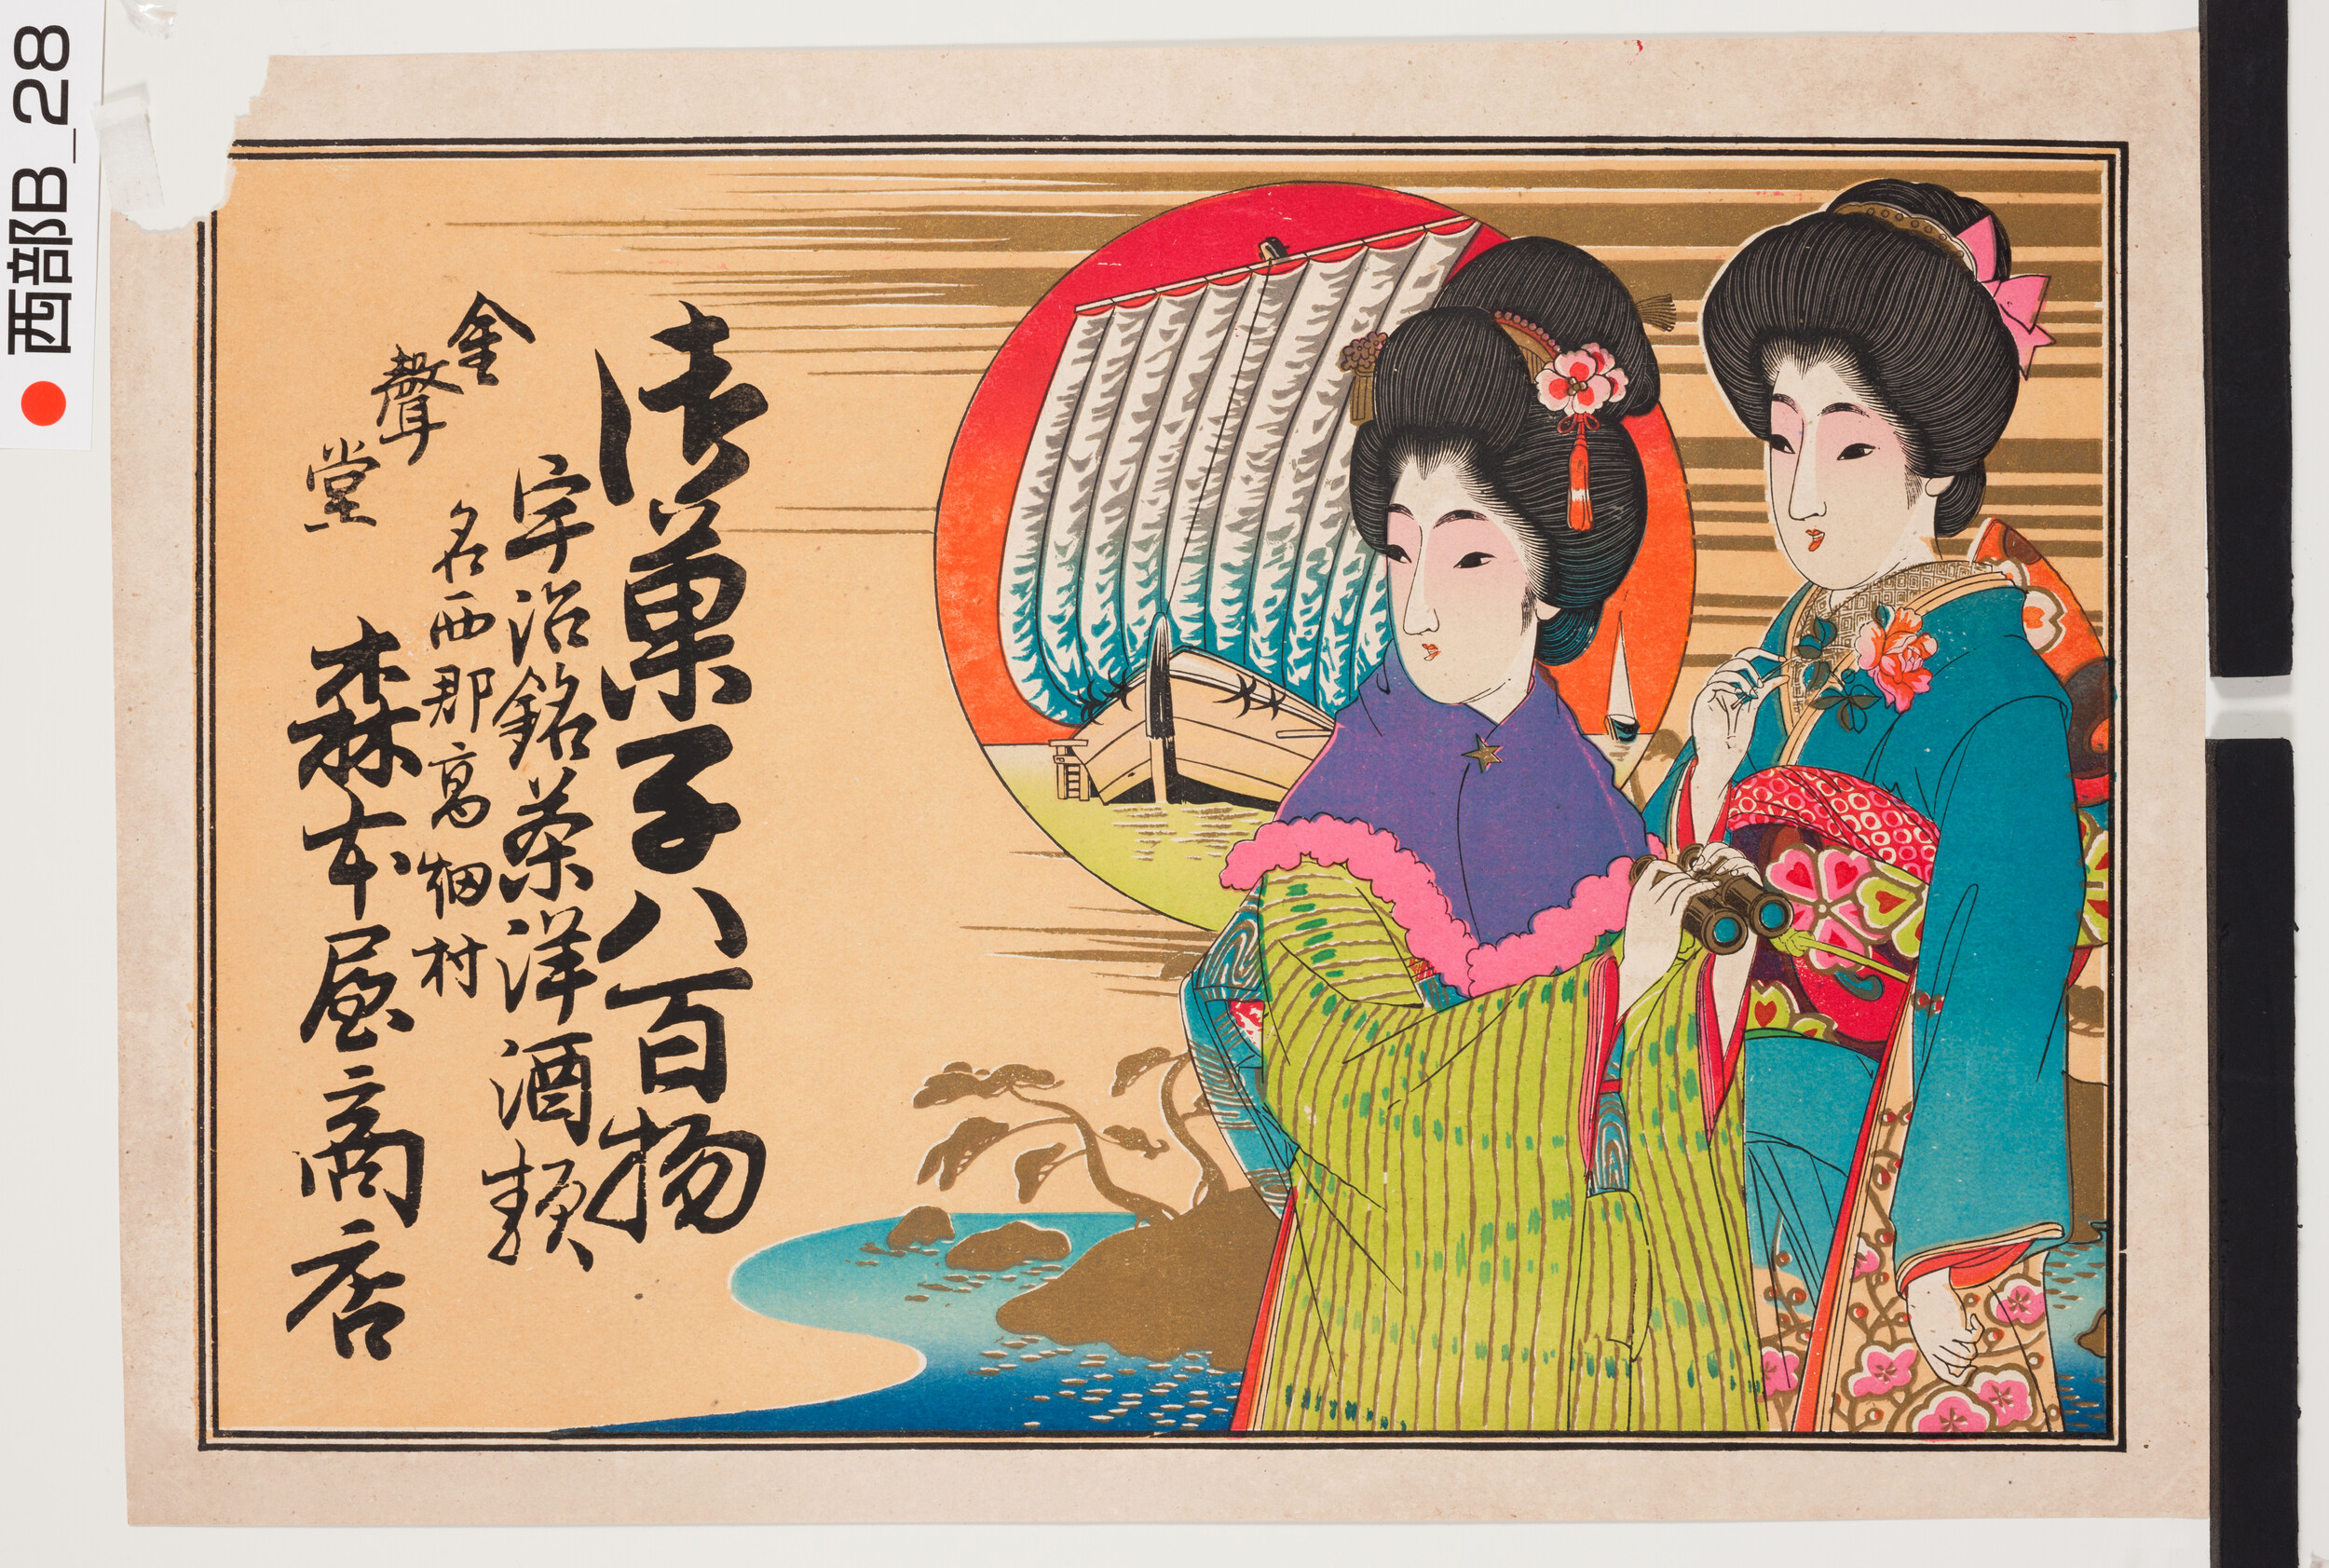 御菓子八百物
宇治銘茶洋酒類
名西郡高畑村
金聲堂
森本屋商店
西部B_28